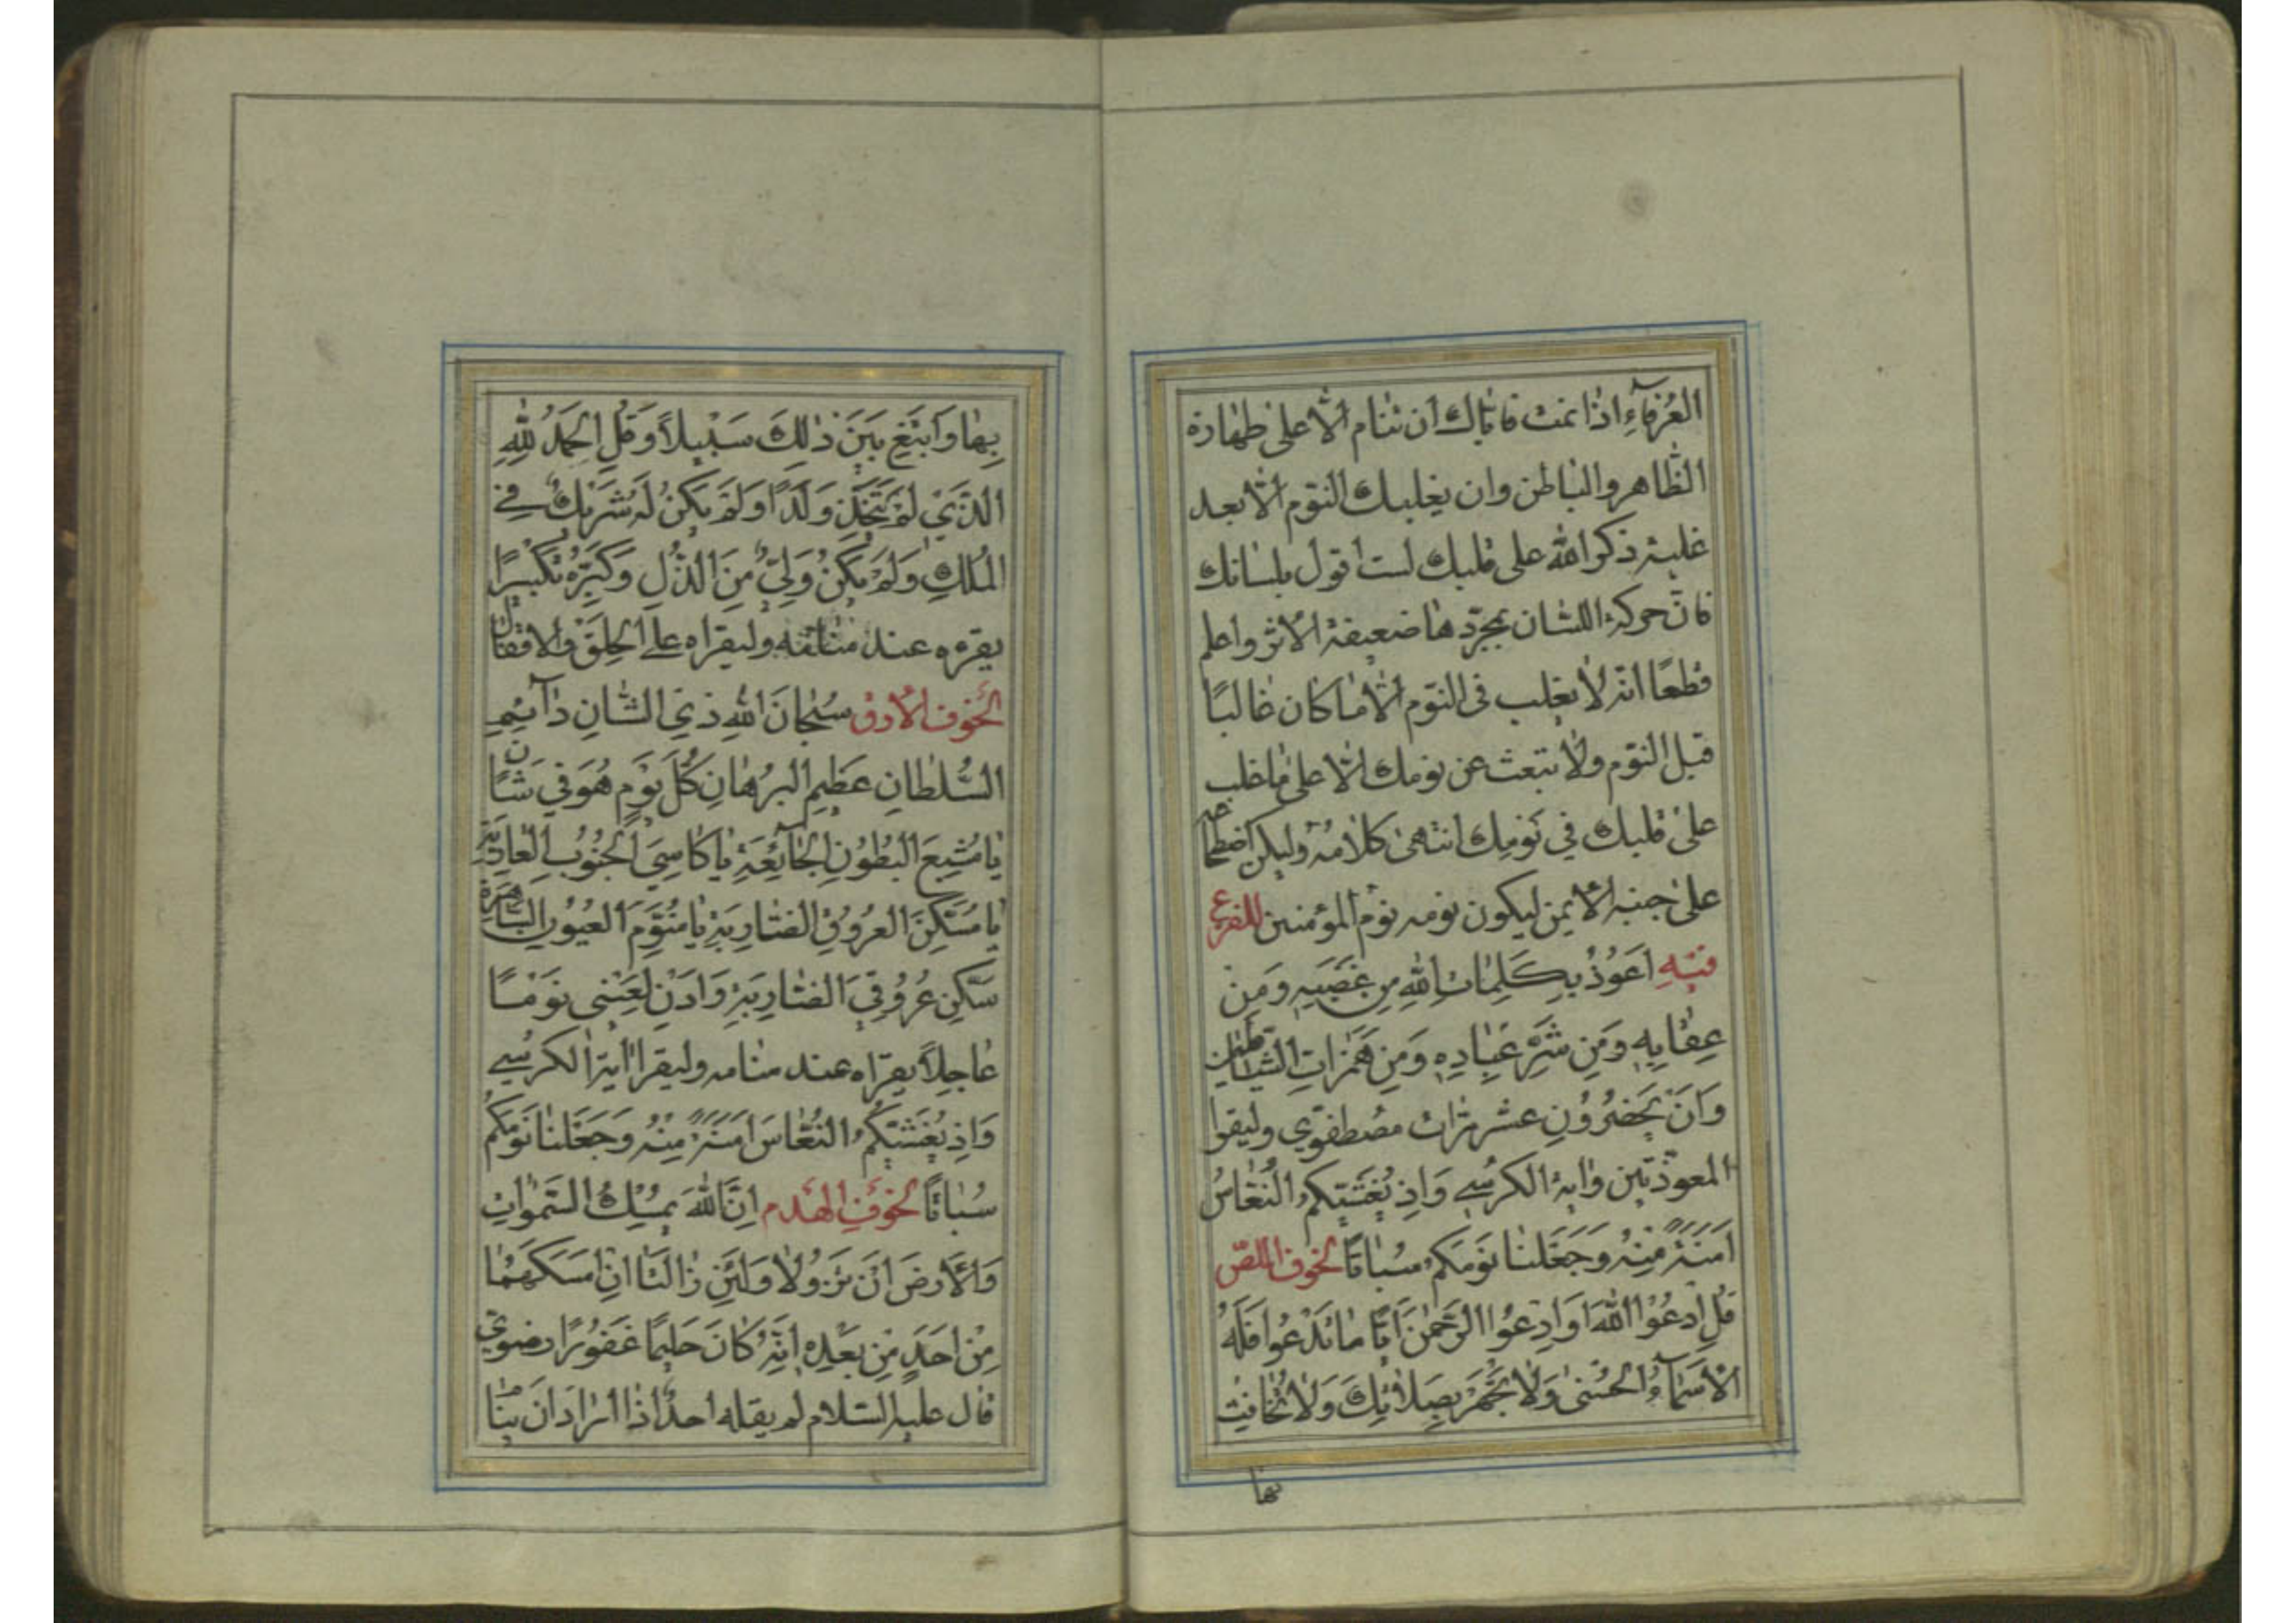 العُرَفآءِ اذا نمت فاياك ان تنام الّا على طهارة
الظّاهر والباطن وان يغلبك النّوم الّا بعد
غلبة ذكر الله على قلبك لست اقول بلسانك
فانّ حركة اللسان بمجرّدها ضعيفة الاثر واعلم
قطعًا انّه لا يغلب فى النّوم الّا ما كان غالبًا
قبل النّوم ولا تبعث عن نومك الّا على ما غلب
على قلبك فِي نَومِك انتهى كلامُه وليكن اضطجاعه
على جنبه الايمن ليكون نومه نوم المؤمنين للفزع
فيهِ اَعوُذُ بِكَلِماتِ اللهِ مِن غَضَبِهِ وَمِن
عِقابِهِ وَمِن شَرِّ عِبادِهِ وَمِن هَمَزاتِ الشَّياطينِ
وَاَن يَحضُرُونِ عشر مرّات مصطفوي وليقرا
المعوّذتين وآية الكرسي وَاِذ يُغَشّيكُمُ النُّعاسُ
اَمَنَةً مِنهُ وَجَعَلنا نَومَكُم سُباتًا لخوف اللّص
قُلِ ادعُوا اللهَ اَوِ ادعُوا الرَّحمنَ اَيًّا ما تَدعُوا فَلَهُ
الاَسمآءُ الحُسنى وَلا تَجهَر بِصَلاتِكَ وَلا تُخافِت
بها
بِها وَابتَغِ بَينَ ذلِكَ سَبيلاً وَقُلِ الحَمدُ لِلّهِ
الَّذي لَم يَتَّخِذ وَلَدًا وَلَم يَكُن لَهُ شَريكٌ فِي
المُلكِ وَلَم يَكُن وَلِيٌّ مِنَ الذُّلِّ وَكَبِّرهُ تَكبيرًا
يقرءه عند منامه وليقراه على الحلق والاقفال
لخوف الارق سُبحانَ اللهِ ذِي الشّانِ دآئِمِ
السُّلطانِ عَظيمِ البُرهانِ كُلَّ يَومٍ هُوَ في شَانٍ
يا مُشبِعَ البُطُونِ الجائِعَةِ يا كاسِيَ الجُنُوبِ العارِيَةِ
يا مُسَكِّنَ العُرُوقِ الضّارِبَةِ يا مُنَوِّمَ العُيُونِ السّاهِرَةِ
سَكِّن عُرُوقِيَ الضّارِبَةَ وَاذَن لِعَيني نَومًا
عاجِلاً يقراه عند منامه وليقرا اية الكرسي
وَاِذ يُغَشّيكُمُ النُّعاسَ اَمَنَةً مِنهُ وَجَعَلنا نَومَكُم
سُباتًا لخوف الهَدم اِنَّ اللهَ يُمسِكُ السَّمواتِ
وَالاَرضَ اَن تَزُولا وَلَئِن زالَتا اِن اَمسَكَهُما
مِن اَحَدٍ مِن بَعدِهِ اِنَّهُ كانَ حَليمًا غَفُورًا رضوي
قال عليه السّلام لم يقله احدٌ اذا اراد ان ينام